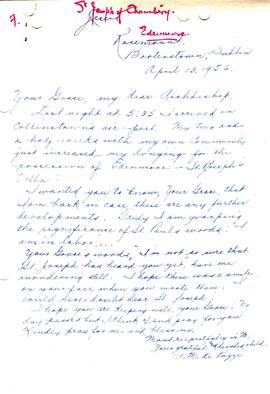 7.
St. Joseph of Chambéry.
Edenmore.
Rosemount
Booterstown, Dublin
April 13, 1956.
Your Grace, my dear Archbishop,
Last night at 5:35 I arrived in
Collinstown air-port. My two and
a half weeks with my own Community
just increased my longing for the
possession of Edenmore - St. Joseph's
Villa.
I wanted you to know, Your Grace, that
I am back in case there are any further
developments. Truly I am grasping
the significance of St. Paul's words: "I
am in labor..."
Your Grace's words, "I'm not so sure that
St. Joseph has heard you yet", have me
wondering still. I hope there was a smile
on your face when you wrote them. I
could never doubt dear St. Joseph.
I hope you are keeping well, your Grace. No
day passes but I think of and pray for you.
Kindly pray for me and bless me.
Most respectfully in
Your grateful devoted child.